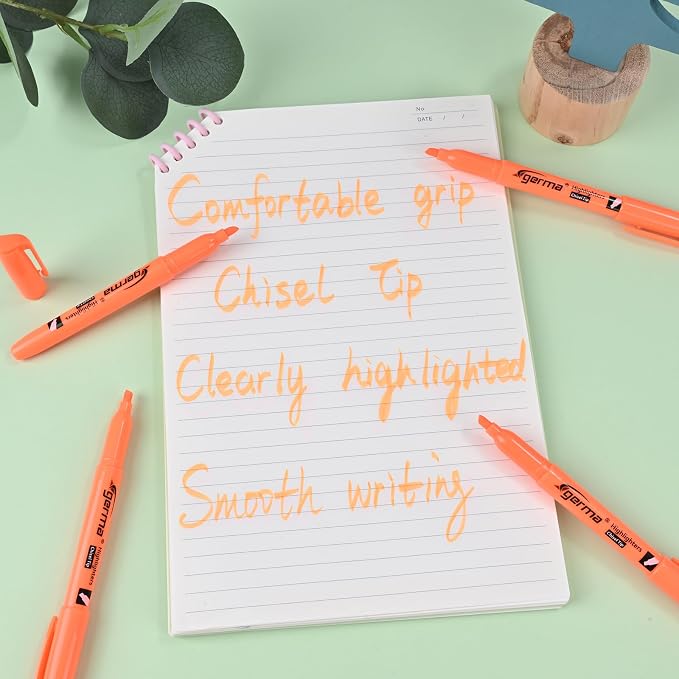 No
DATE / /
Comfortable grip
Chisel Tip
Clearly highlighted
Smooth writing
germa® Highlighters
Chisel Tip
germa® Highlighters
Chisel Tip
germa® Highlighters
Chisel Tip
germa® Highlighters
Chisel Tip